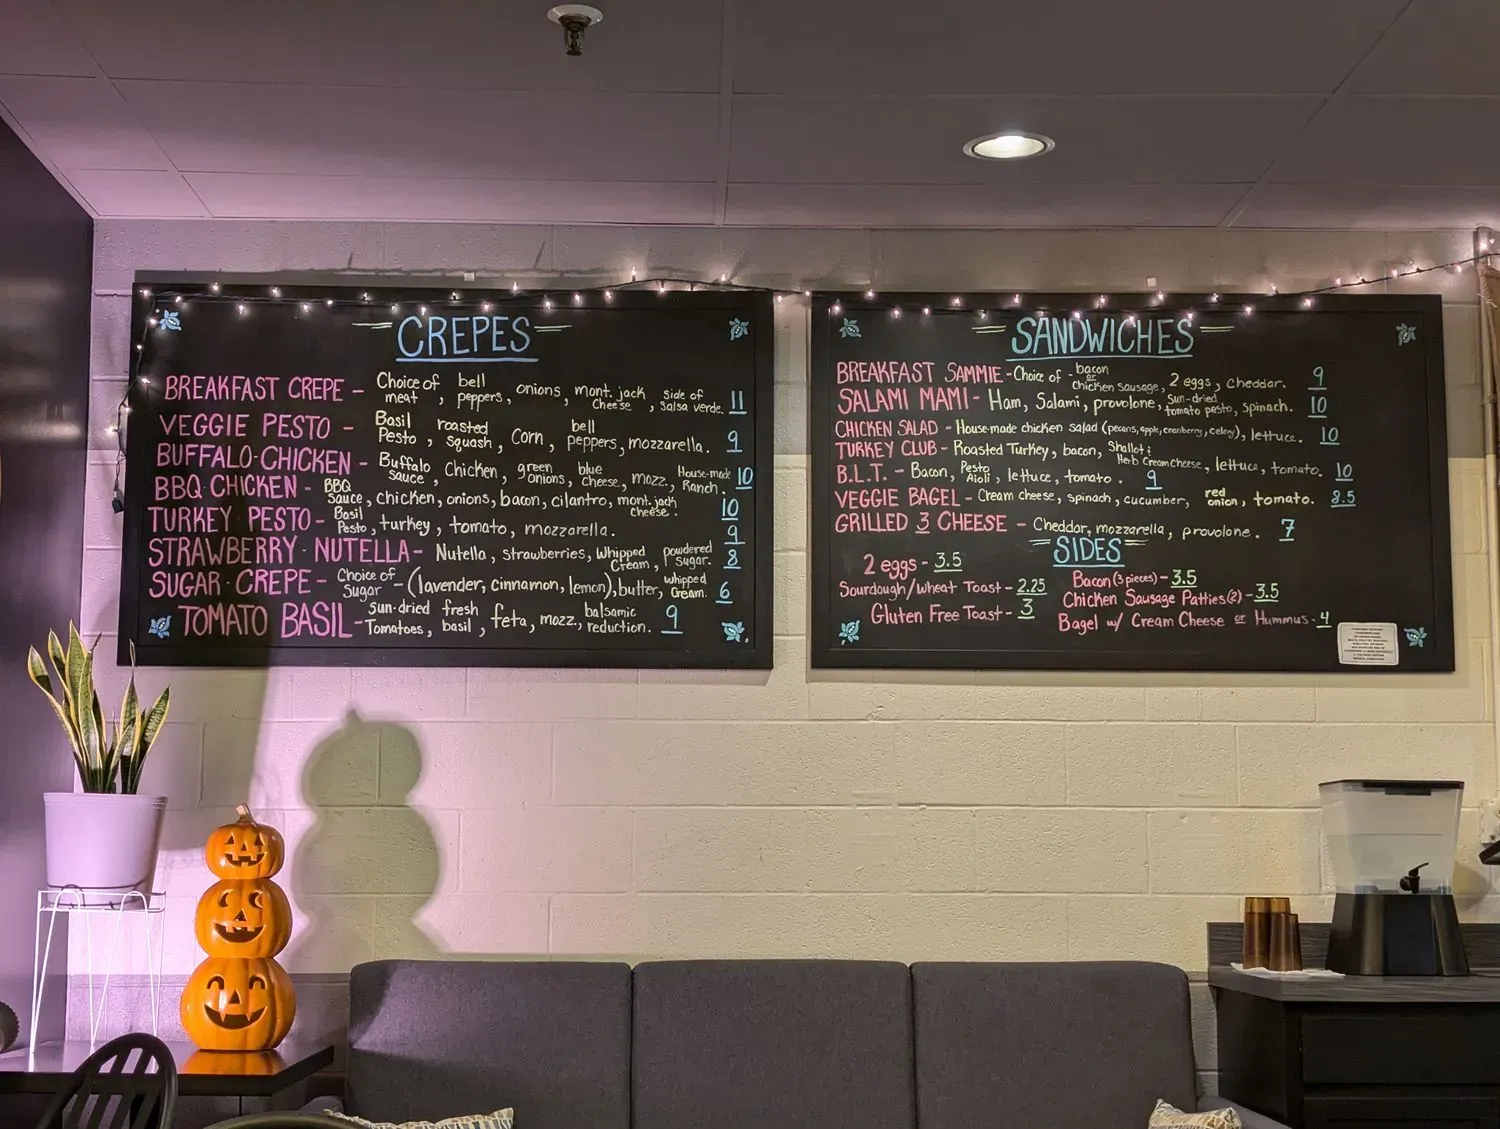 CREPES
BREAKFAST CREPE - Choice of meat, bell peppers, onions, mont. jack cheese, side of salsa verde. 11
VEGGIE PESTO - Basil Pesto, roasted squash, Corn, bell peppers, mozzarella. 9
BUFFALO·CHICKEN - Buffalo sauce, Chicken, green onions, blue cheese, mozz., House-made Ranch. 10
BBQ·CHICKEN - BBQ sauce, chicken, onions, bacon, cilantro, mont. jack cheese. 10
TURKEY PESTO - Basil Pesto, turkey, tomato, mozzarella. 9
STRAWBERRY·NUTELLA - Nutella, strawberries, Whipped Cream, powdered sugar. 8
SUGAR·CREPE - Choice of Sugar - (lavender, cinnamon, lemon), butter, whipped cream. 6
TOMATO BASIL - sun-dried Tomatoes, fresh basil, feta, mozz., balsamic reduction. 9
SANDWICHES
BREAKFAST SAMMIE - Choice of - bacon or chicken sausage, 2 eggs, cheddar. 9
SALAMI MAMI - Ham, Salami, provolone, sun-dried tomato pesto, spinach. 10
CHICKEN SALAD - House-made chicken salad (pecans, apple, cranberry, celery), lettuce. 10
TURKEY CLUB - Roasted Turkey, bacon, Shallot & Herb Cream cheese, lettuce, tomato. 10
B.L.T. - Bacon, Pesto Aioli, lettuce, tomato. 9
VEGGIE BAGEL - Cream cheese, spinach, cucumber, red onion, tomato. 8.5
GRILLED 3 CHEESE - Cheddar, mozzarella, provolone. 7
SIDES
2 eggs - 3.5
Sourdough/Wheat Toast - 2.25
Gluten Free Toast - 3
Bacon (3 pieces) - 3.5
Chicken Sausage Patties (2) - 3.5
Bagel w/ Cream Cheese or Hummus - 4